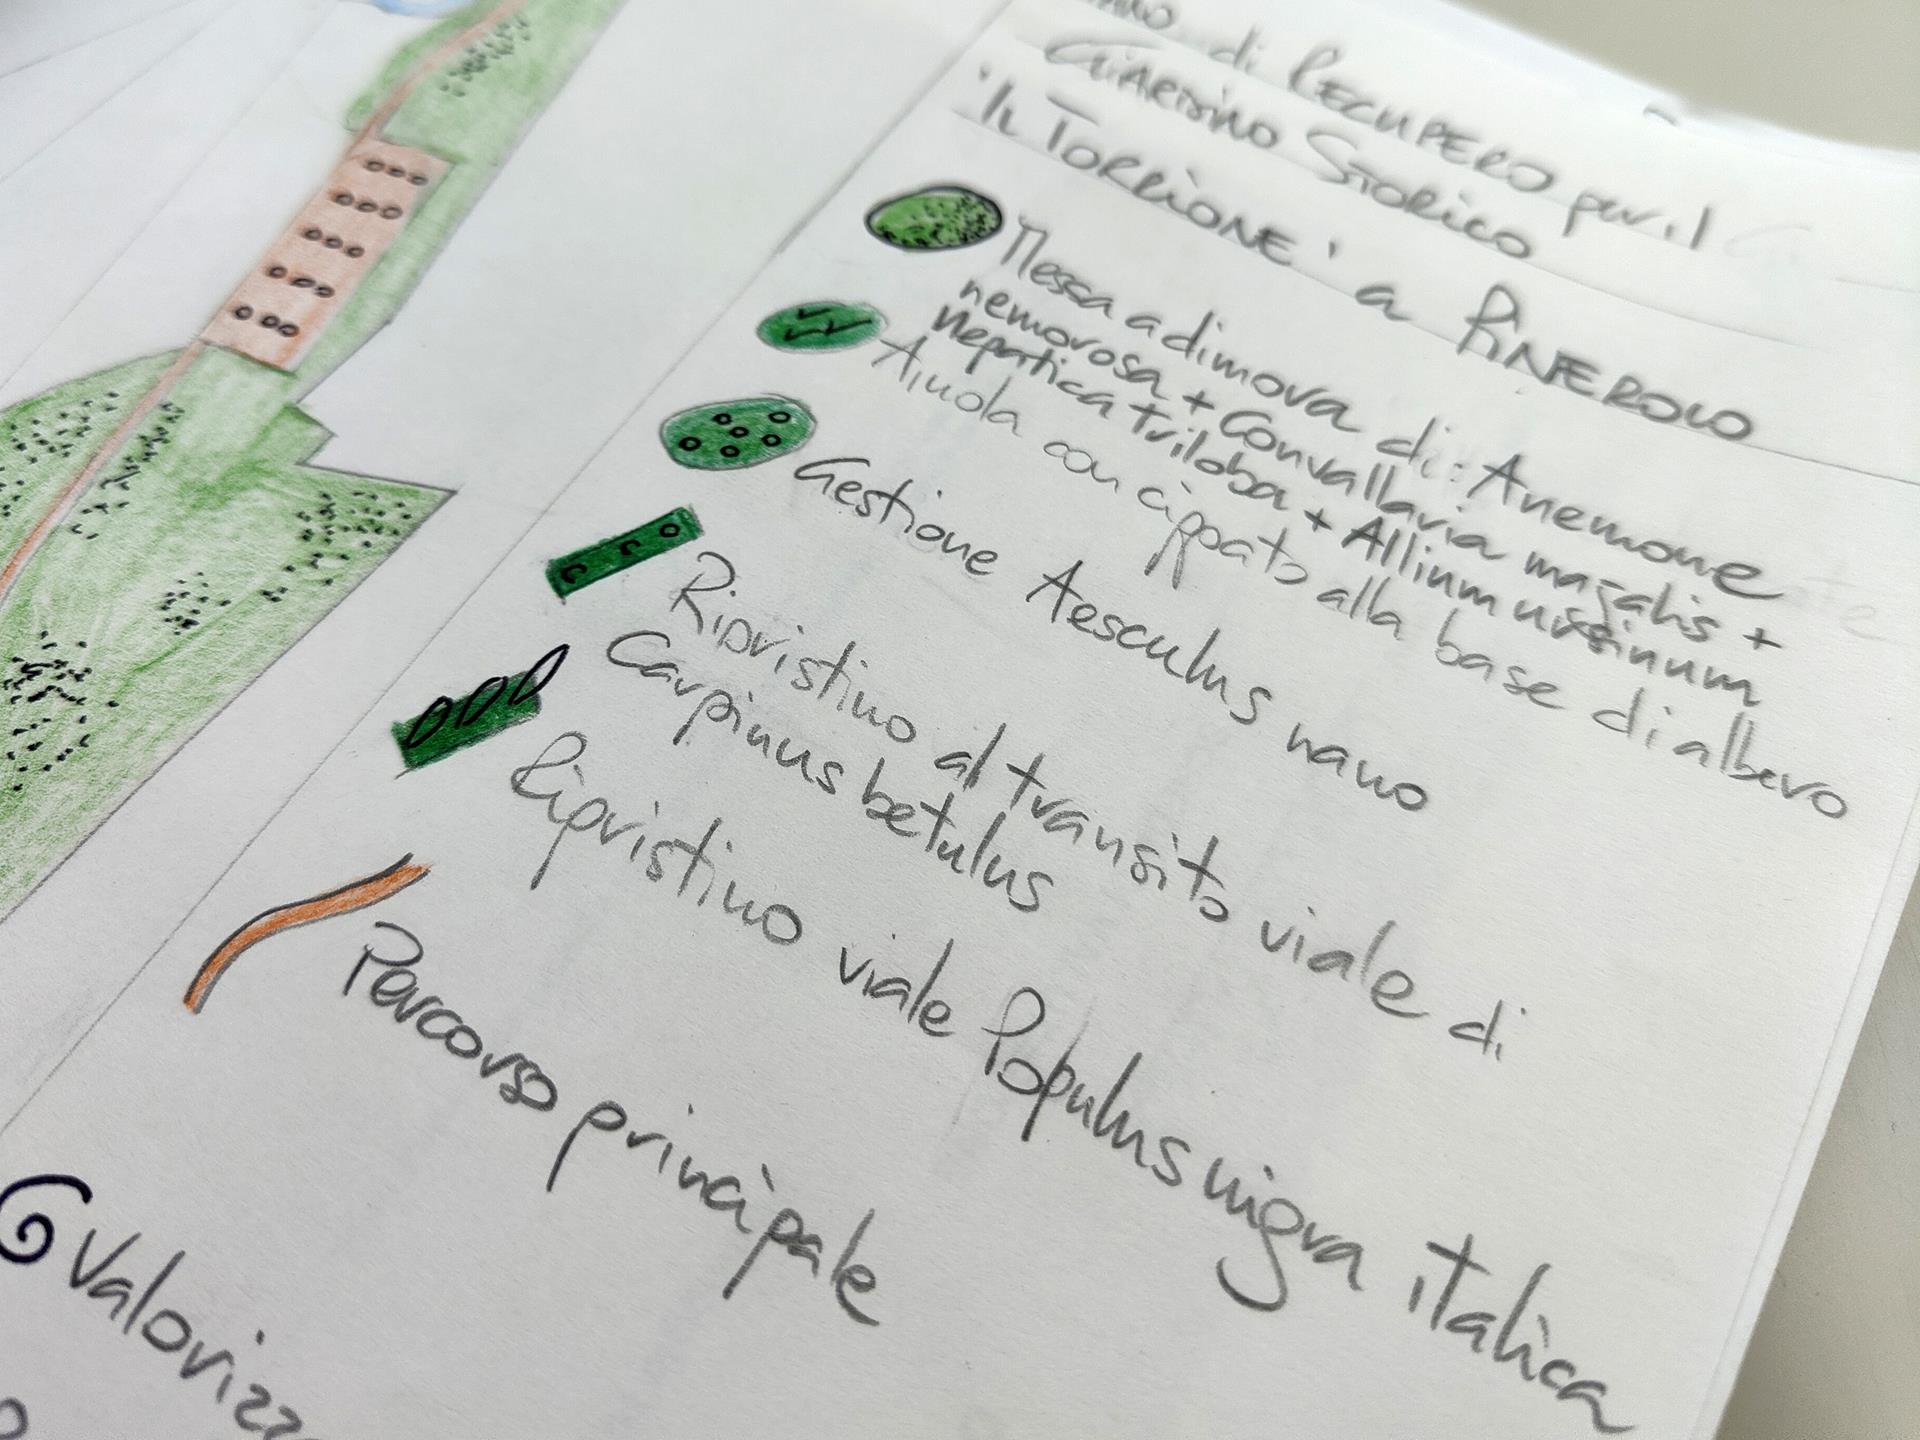 di RECUPERO per il
GIARDINO STORICO
'IL TORRIONE' a PINEROLO
Messa a dimora di: Anemone
nemorosa + Convallaria majalis +
Hepatica triloba + Allium ursinum
Aiuola con cippato alla base di albero
Gestione Aesculus nano
Ripristino al transito viale di
Carpinus betulus
Ripristino viale Populus nigra italica
Percorso principale
Valorizz